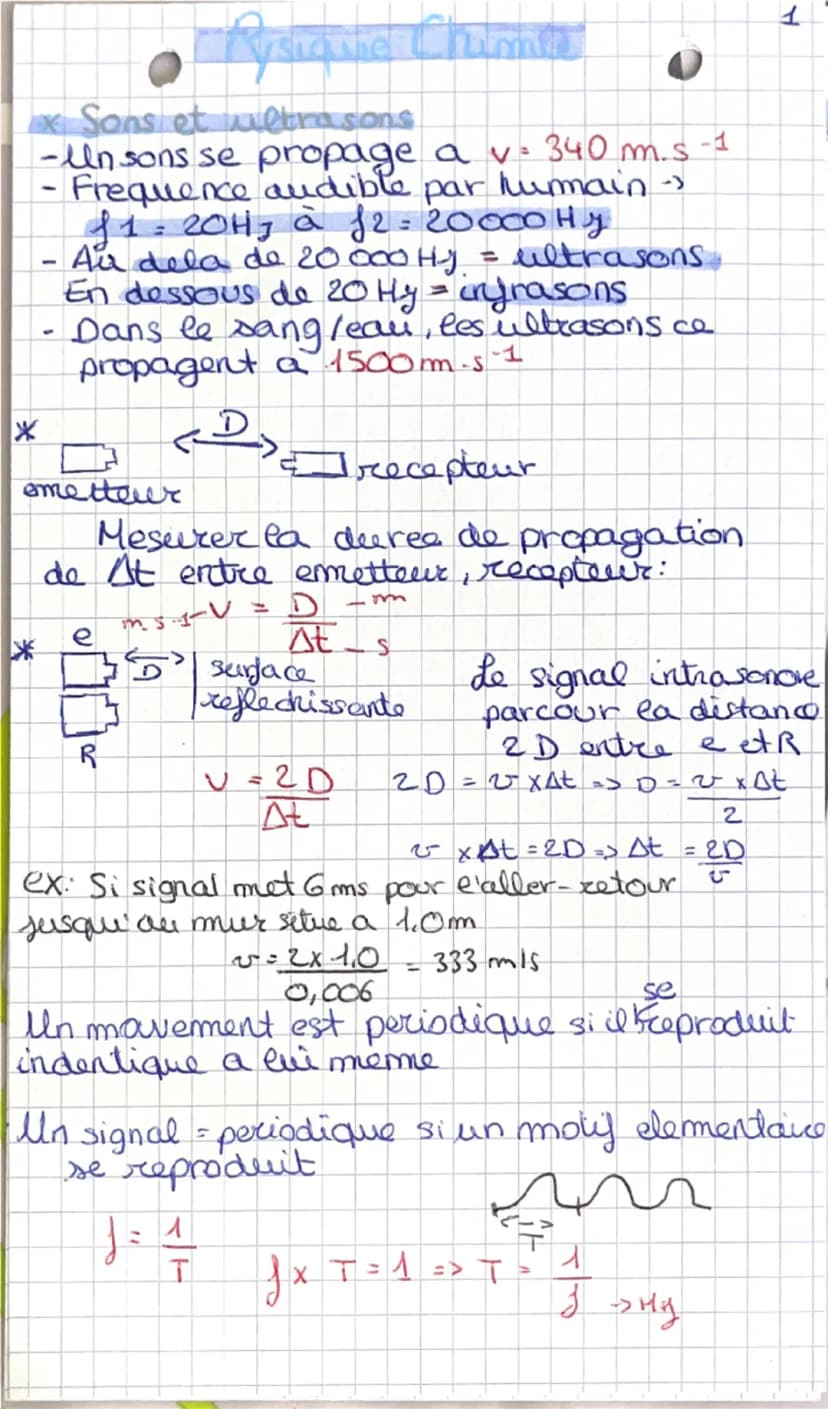 1
Pysique Chimie
* Sons et ultrasons
- Un sons se propage a v = 340 m.s -1
- Frequence audible par humain ->
f1 = 20Hz à f2 = 20000 Hz
- Au dela de 20 000 Hz = ultrasons
En dessous de 20 Hz = infrasons
- Dans le sang/eau, les ultrasons ce
propagent a 1500 m.s -1
* D
recepteur
emetteur
Mesurer la duree de propagation
de Δt entre emetteur, recepteur:
m.s-1 - V = D - m
Δt - s
* e
D surface
reflechissante
R
Le signal intrasonore
parcour la distance
2D entre e et R
V = 2D
Δt
2D = v x Δt => D = v x Δt
2
v x Δt = 2D => Δt = 2D
v
ex: Si signal met 6 ms pour l'aller-retour
jusqu'au mur situe a 1,0m
v = 2 x 1,0 = 333 m/s
0,006
Un mouvement est periodique si il se reproduit
indentique a lui meme
Un signal = periodique si un motif elementaire
se reproduit
T
f = 1
T
f x T = 1 => T = 1
f -> Hz